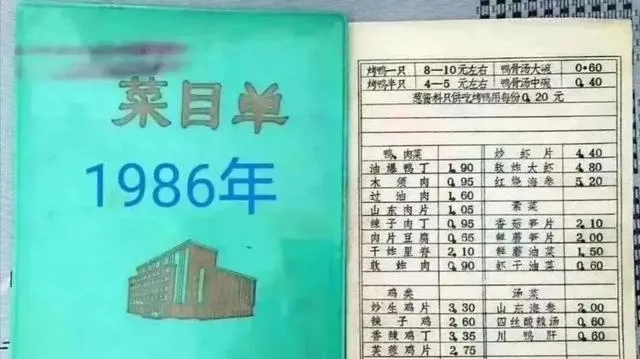 菜目单
1986年
烤鸭一只 8—10元左右 鸭骨汤大碗 0.60
烤鸭半只 4—5元左右 鸭骨汤中碗 0.40
葱酱料只供吃烤鸭用每份0.20元
鸭.肉菜
油爆鸭丁 1.90
木须肉 0.95
过油肉 1.60
山东肉片 1.05
辣子肉丁 0.95
肉片豆腐 0.65
干炸里脊 2.10
软炸肉 0.90
鸡类
炒生鸡片 3.30
辣子鸡 2.60
香辣鸡丁 3.35
芙蓉鸡片 2.75
炒虾片 4.40
软炸大虾 4.80
红烧海参 5.20
素菜
香菇笋片 2.10
鲜蘑笋片 2.00
鲜蘑油菜 1.50
虾干油菜 0.60
汤菜
山东海参 2.00
四丝酸辣汤 0.60
川鸭肝 0.60